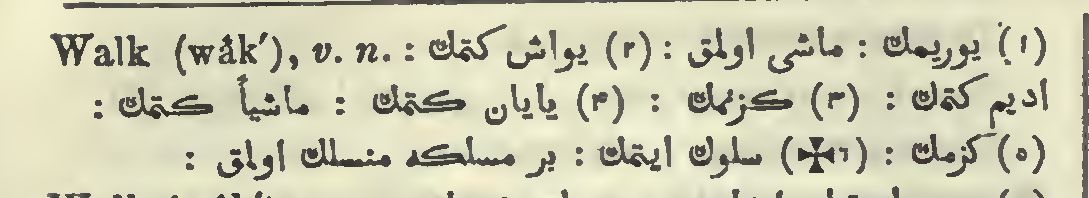 Walk (wâk′), v. n. : (١) يوريمك : ماشى اولمق : (٢) يواش كتمك
اديم كتمك : (٣) كزنمك : (٤) يايان كتمك : ماشياً كتمك :
(٥) كزمك : (٦✠) سلوك ايتمك : بر مسلكه منسلك اولمق :